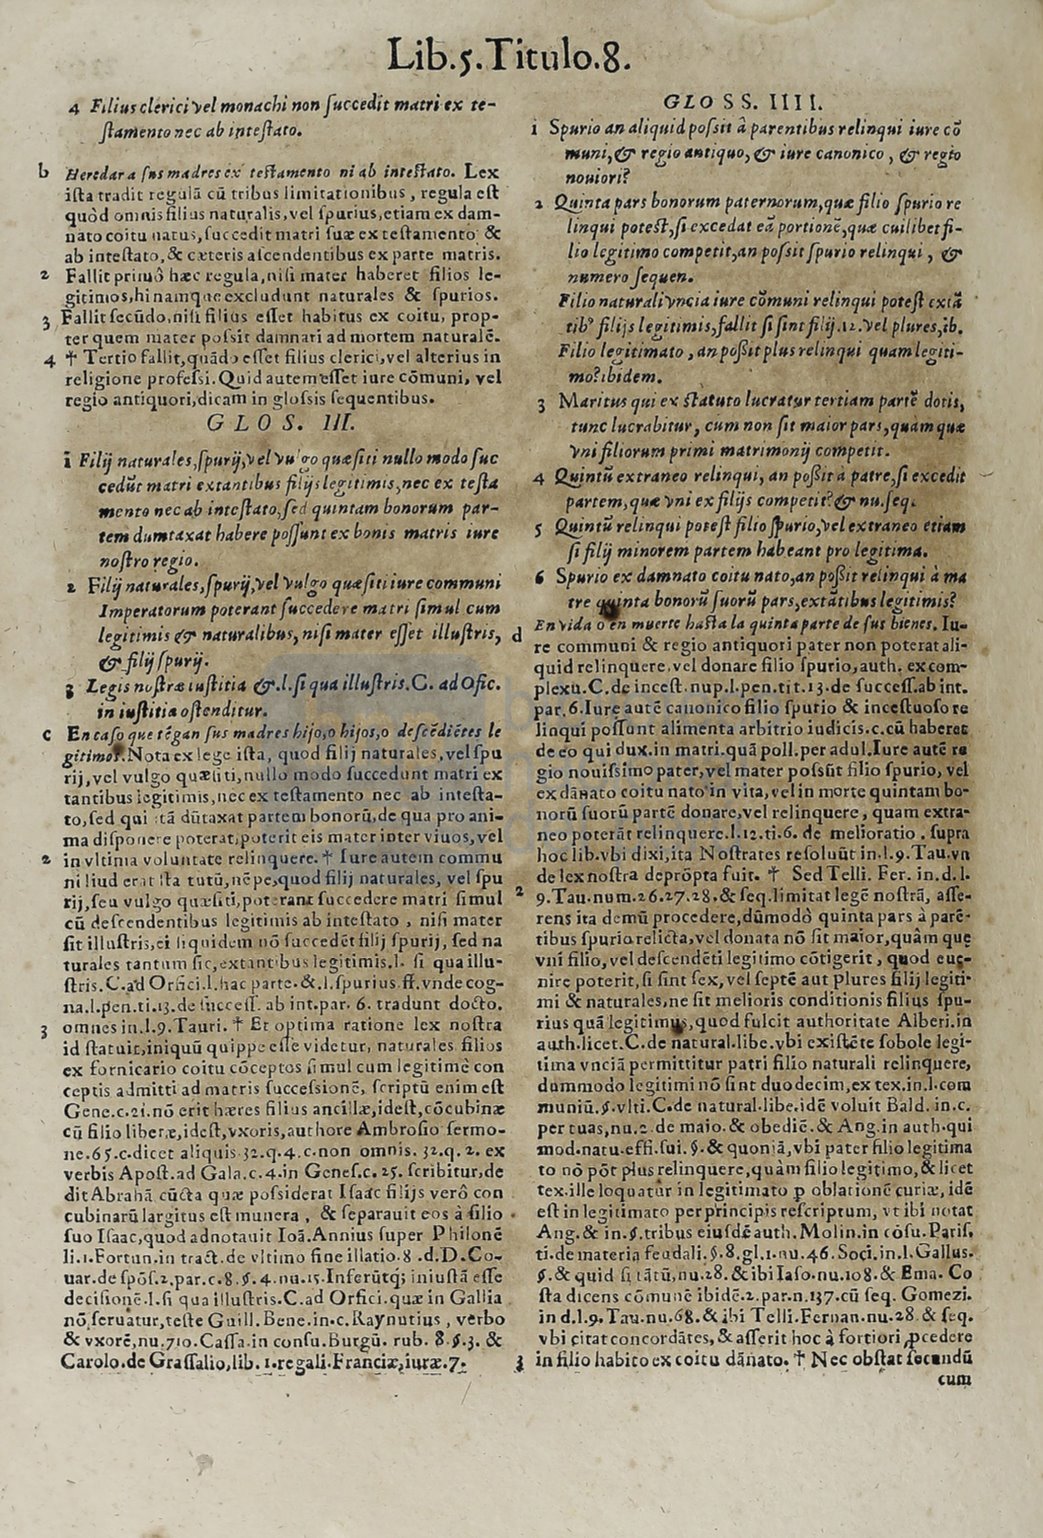 Lib.5.Titulo.8.
4 Filius clerici vel monachi non ſuccedit matri ex te-
ſtamento nec ab inteſtato.
b Heredar a ſus madres ex teſtamento ni ab inteſtato. Lex
iſta tradit regulā cū tribus limitationibus, regula eſt
quòd omnis filius naturalis, vel ſpurius, etiam ex dam-
nato coitu natus, ſuccedit matri ſuæ ex teſtamento &
ab inteſtato, & cæteris aſcendentibus ex parte matris.
2 Fallit primò hæc regula, niſi mater haberet filios le-
gitimos, hi namque excludunt naturales & ſpurios.
3 Fallit ſecūdo, niſi filius eſſet habitus ex coitu, prop-
ter quem mater poſsit damnari ad mortem naturalē.
4 † Tertio fallit, quādo eſſet filius clerici, vel alterius in
religione profeſsi. Quid autem eſſet iure cōmuni, vel
regio antiquori, dicam in gloſsis ſequentibus.
GLOS. III.
1 Filij naturales, ſpurij, vel vulgo quæſiti nullo modo ſuc
cedūt matri extantibus filijs legitimis, nec ex teſta
mento nec ab inteſtato, ſed quintam bonorum par-
tem dumtaxat habere poſſunt ex bonis matris iure
noſtro regio.
2 Filij naturales, ſpurij, vel vulgo quæſiti iure communi
Imperatorum poterant ſuccedere matri ſimul cum
legitimis & naturalibus, niſi mater eſſet illuſtris,
& filij ſpurij.
3 Legis noſtræ iuſtitia &.l. ſi qua illuſtris. C. ad Ofic.
in iuſtitia oſtenditur.
c En caſo que tēgan ſus madres hijo, o hijos, o deſcēdiētes le
gitimos. Nota ex lege iſta, quod filij naturales, vel ſpu
rij, vel vulgo quæſiti, nullo modo ſuccedunt matri ex
tantibus legitimis, nec ex teſtamento nec ab inteſta-
to, ſed quītā dūtaxat partem bonorū, de qua pro ani-
ma diſponere poterat, poterit eis mater inter viuos, vel
2 in vltima voluntate relinquere. † Iure autem commu
ni liud erat iſta tutū, nēpe, quod filij naturales, vel ſpu
rij, ſeu vulgo quæſiti, poterant ſuccedere matri ſimul
cū deſcendentibus legitimis ab inteſtato, niſi mater
ſit illuſtris, ei ſiquidem nō ſuccedēt filij ſpurij, ſed na
turales tantum ſic, extantibus legitimis. l. ſi qua illu-
ſtris. C. ad Orfici. l. hac parte. &. l. ſpurius. ff. vnde cog-
na. l. pen. ti. 13. de ſucceſſ. ab int. par. 6. tradunt docto.
3 omnes in. l. 9. Tauri. † Et optima ratione lex noſtra
id ſtatuit, iniquū quippe eſſe videtur, naturales filios
ex fornicario coitu cōceptos ſimul cum legitimè con
ceptis admitti ad matris ſucceſsionē, ſcriptū enim eſt
Gene. c. 21. nō erit hæres filius ancillæ, ideſt, cōcubinæ
cū filio liberæ, ideſt, vxoris, authore Ambroſio ſermo-
ne. 65. c. dicet aliquis 32. q. 4. c. non omnis. 32. q. 2. ex
verbis Apoſt. ad Gala. c. 4. in Geneſ. c. 25. ſcribitur, de
dit Abrahā cūcta quæ poſsiderat Iſaac filijs verò con
cubinarū largitus eſt munera, & ſeparauit eos à filio
ſuo Iſaac, quod adnotauit Ioā. Annius ſuper Philonē
li. 1. Fortun. in tract. de vltimo fine illatio. 8. d. D. Co-
uar. de ſpōſ. 2. par. c. 8. §. 4. nu. 15. Inferūtq; iniuſtā eſſe
deciſionē. l. ſi qua illuſtris. C. ad Orfici. quæ in Gallia
nō ſeruatur, teſte Guill. Bene. in. c. Raynutius, verbo
& vxorē, nu. 710. Caſſa. in conſu. Burgū. rub. 8. §. 3. &
Carolo. de Graſſalio, lib. 1. regali. Franciæ, iuræ. 7.
GLOSS. IIII.
1 Spurio an aliquid poſsit à parentibus relinqui iure cō
muni, & regio antiquo, & iure canonico, & regio
nouiori?
2 Quinta pars bonorum paternorum, quæ filio ſpurio re
linqui poteſt, ſi excedat eā portionē, quæ cuilibet fi-
lio legitimo competit, an poſsit ſpurio relinqui, &
numero ſequen.
Filio naturali vncia iure cōmuni relinqui poteſt extā
tibꝰ filijs legitimis, fallit ſi ſint filij. 12. vel plures, ib.
Filio legitimato, an poſsit plus relinqui quam legiti-
mo? ibidem.
3 Maritus qui ex ſtatuto lucratur tertiam partē dotis,
tunc lucrabitur, cum non ſit maior pars, quàm quæ
vni filiorum primi matrimonij competit.
4 Quintū extraneo relinqui, an poſsit à patre, ſi excedit
partem, quæ vni ex filijs competit? & nu. ſeq.
5 Quintū relinqui poteſt filio ſpurio, vel extraneo etiam
ſi filij minorem partem habeant pro legitima.
6 Spurio ex damnato coitu nato, an poſsit relinqui à ma
tre quinta bonorū ſuorū pars, extātibus legitimis?
d En vida o en muerte haſta la quinta parte de ſus bienes. Iu-
re communi & regio antiquori pater non poterat ali-
quid relinquere, vel donare filio ſpurio, auth. ex com-
plexu. C. de inceſt. nup. l. pen. tit. 13. de ſucceſſ. ab int.
par. 6. Iure autē canonico filio ſpurio & inceſtuoſo re
linqui poſſunt alimenta arbitrio iudicis. c. cū haberet
de eo qui dux. in matri. quā poll. per adul. Iure autē re
gio nouiſsimo pater, vel mater poſsūt filio ſpurio, vel
ex dānato coitu nato in vita, vel in morte quintam bo-
norū ſuorū partē donare, vel relinquere, quam extra-
neo poterāt relinquere. l. 12. ti. 6. de melioratio. ſupra
hoc lib. vbi dixi, ita Noſtrates reſoluūt in. l. 9. Tau. vn
de lex noſtra deprōpta fuit. † Sed Telli. Fer. in. d. l.
2 9. Tau. num. 26. 27. 28. & ſeq. limitat legē noſtrā, aſſe-
rens ita demū procedere, dūmodò quinta pars à parē-
tibus ſpurio relicta, vel donata nō ſit maior, quàm quę
vni filio, vel deſcendēti legitimo cōtigerit, quod eue-
nire poterit, ſi ſint ſex, vel ſeptē aut plures filij legiti-
mi & naturales, ne ſit melioris conditionis filius ſpu-
rius quā legitimus, quod fulcit authoritate Alberi. in
auth. licet. C. de natural. libe. vbi exiſtēte ſobole legi-
tima vnciā permittitur patri filio naturali relinquere,
dummodo legitimi nō ſint duodecim, ex tex. in. l. com
muniū. §. vlti. C. de natural. libe. idē voluit Bald. in. c.
per tuas, nu. 2. de maio. & obediē. & Ang. in auth. qui
mod. natu. effi. ſui. §. & quoniā, vbi pater filio legitima
to nō pōt plus relinquere, quàm filio legitimo, & licet
tex. ille loquatur in legitimato ꝑ oblationē curiæ, idē
eſt in legitimato per principis reſcriptum, vt ibi notat
Ang. & in. §. tribus eiuſdē auth. Molin. in cōſu. Pariſ.
ti. de materia feudali. §. 8. gl. 1. nu. 46. Soci. in. l. Gallus.
§. & quid ſi tātū, nu. 28. & ibi Iaſo. nu. 108. & Ema. Co
ſta dicens cōmunē ibidē. 2. par. n. 137. cū ſeq. Gomezi.
in d. l. 9. Tau. nu. 68. & ibi Telli. Fernan. nu. 28. & ſeq.
vbi citat concordātes, & aſſerit hoc à fortiori ꝓcedere
3 in filio habito ex coitu dānato. † Nec obſtat ſecundū
cum